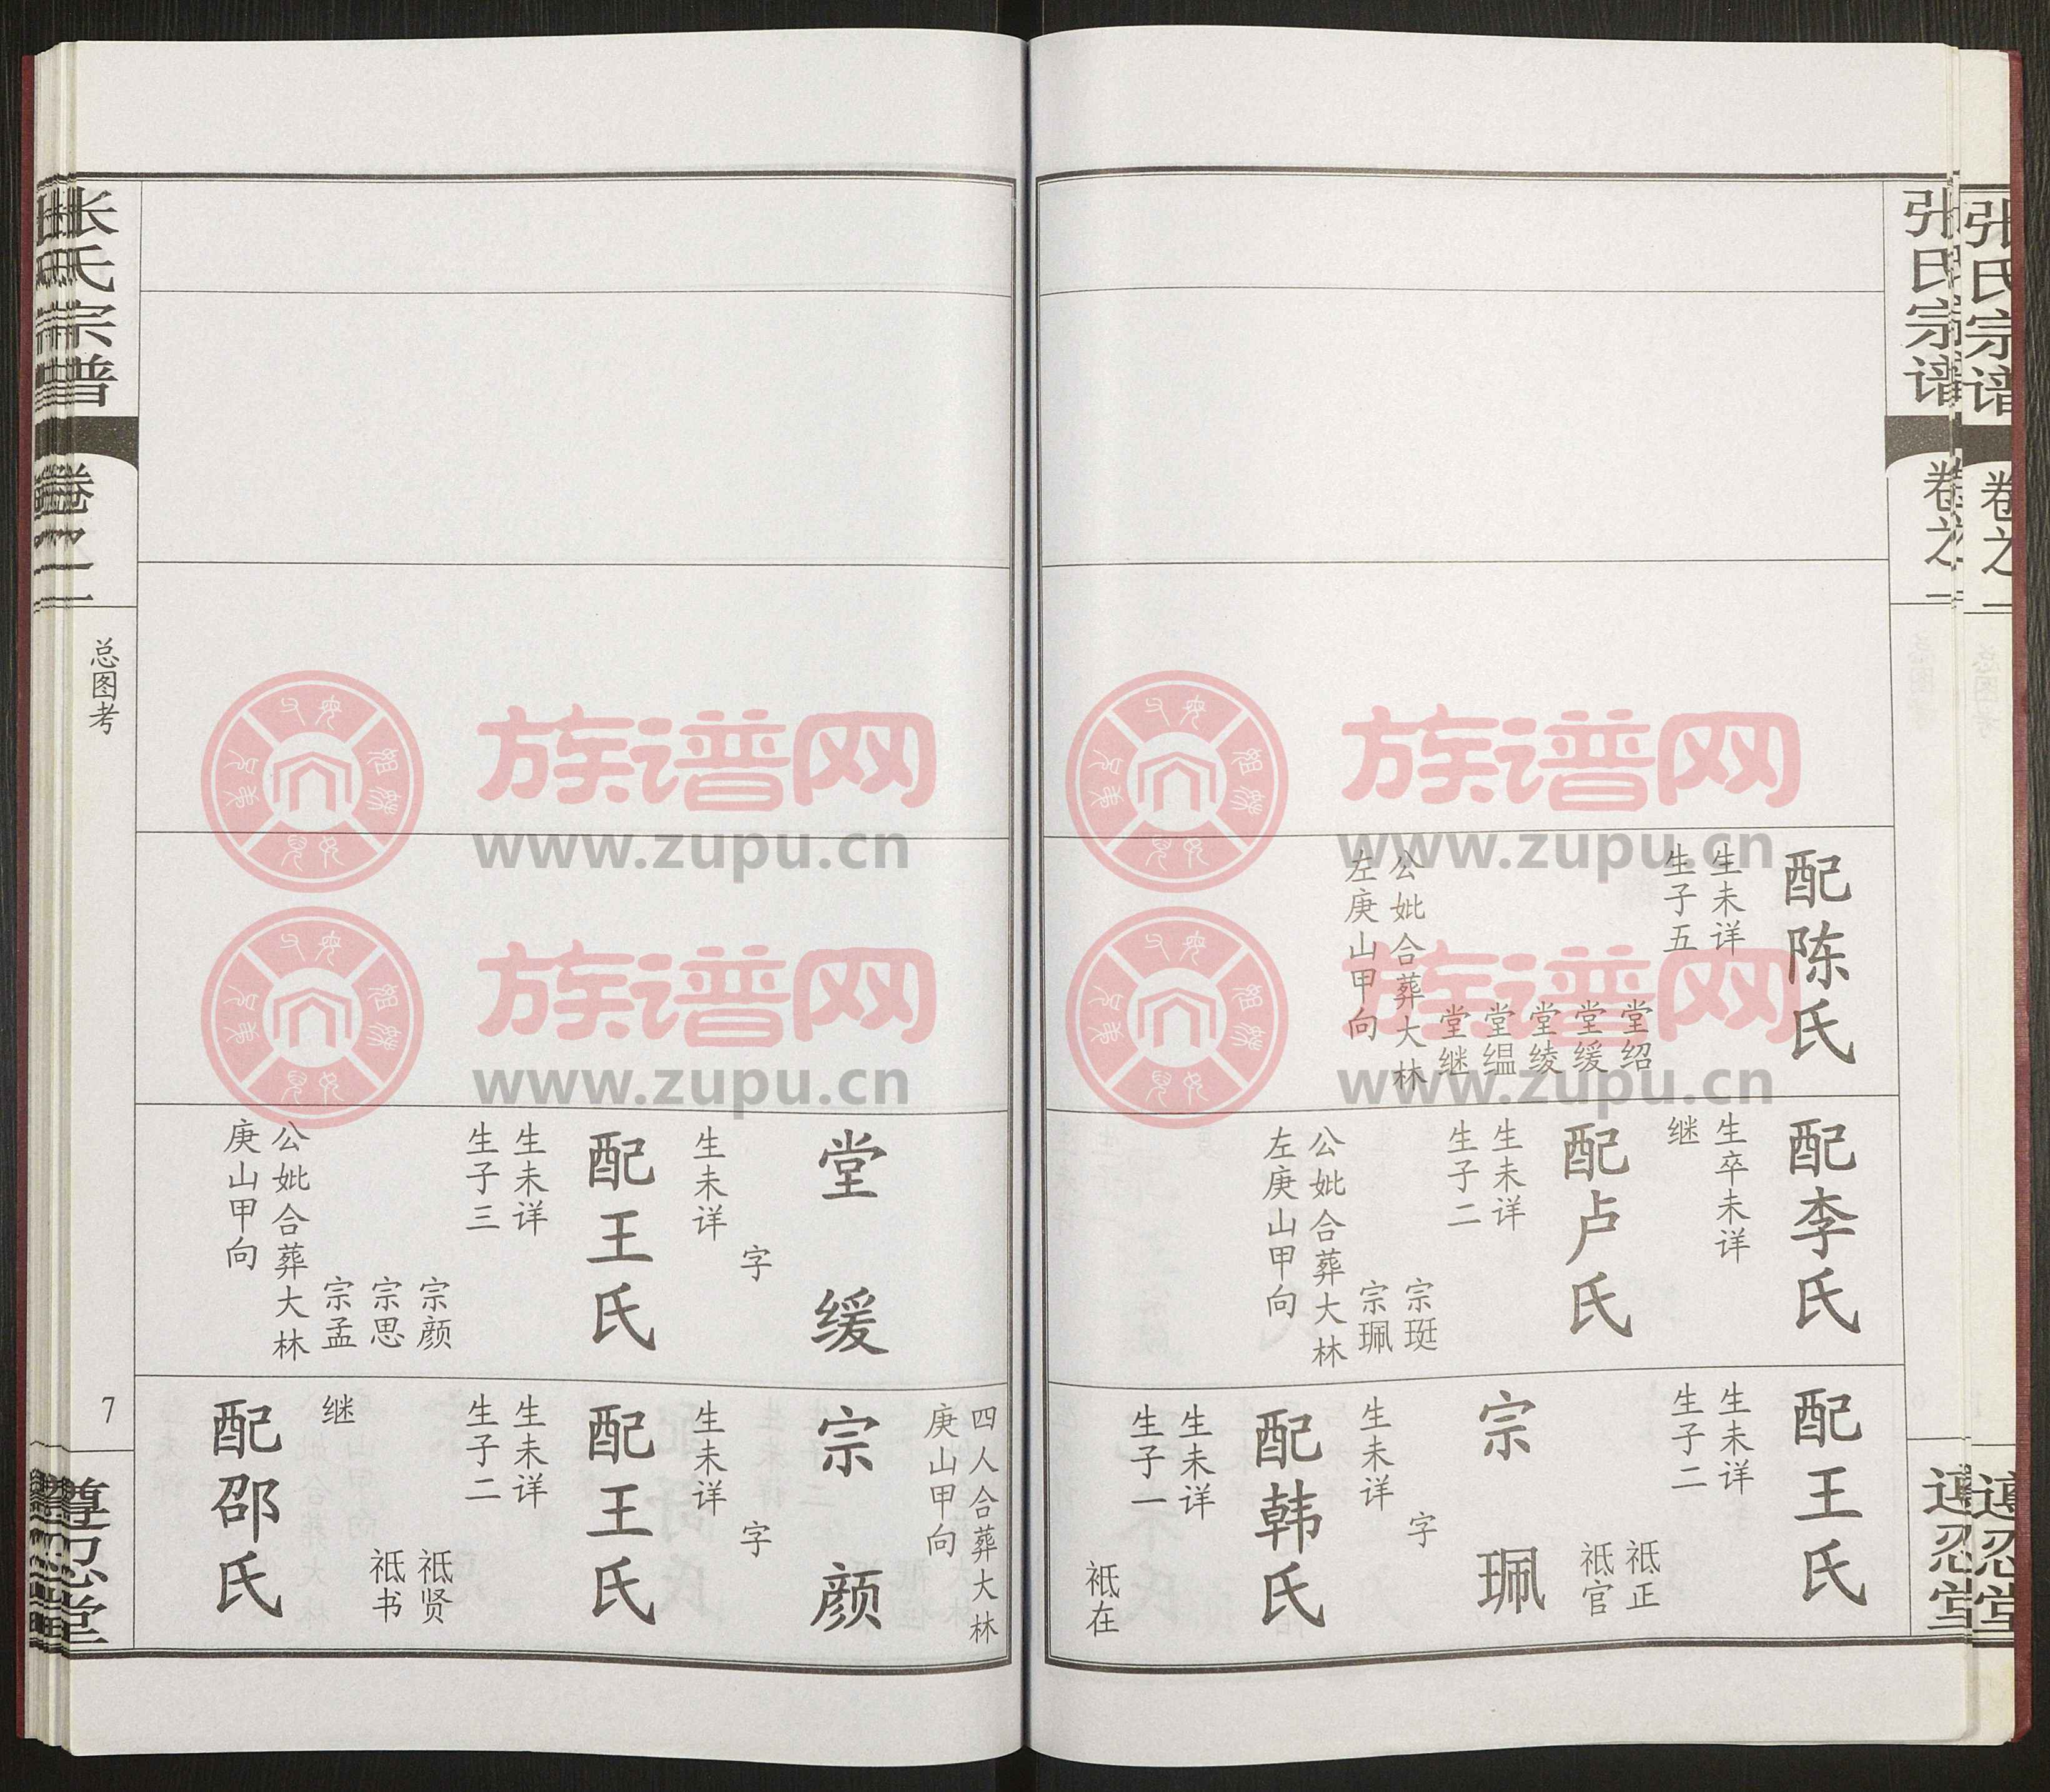 张氏宗谱
卷之一
配陈氏
生未详
生子五
堂绍
堂缓
堂绫
堂缊
堂继
公妣合葬大林
左庚山甲向
配李氏
生卒未详
继
配卢氏
生未详
生子二
宗珽
宗珮
公妣合葬大林
左庚山甲向
配王氏
生未详
生子二
祗正
祗官
宗珮
字
生未详
配韩氏
生未详
生子一
祗在
堂缓
字
生未详
配王氏
生未详
生子三
宗颜
宗思
宗孟
公妣合葬大林
庚山甲向
四人合葬大林
庚山甲向
宗颜
字
生未详
配王氏
生未详
生子二
祗贤
祗书
继
配邵氏
张氏宗谱
总图考
7
族谱网
www.zupu.cn
族谱网
www.zupu.cn
族谱网
www.zupu.cn
族谱网
www.zupu.cn